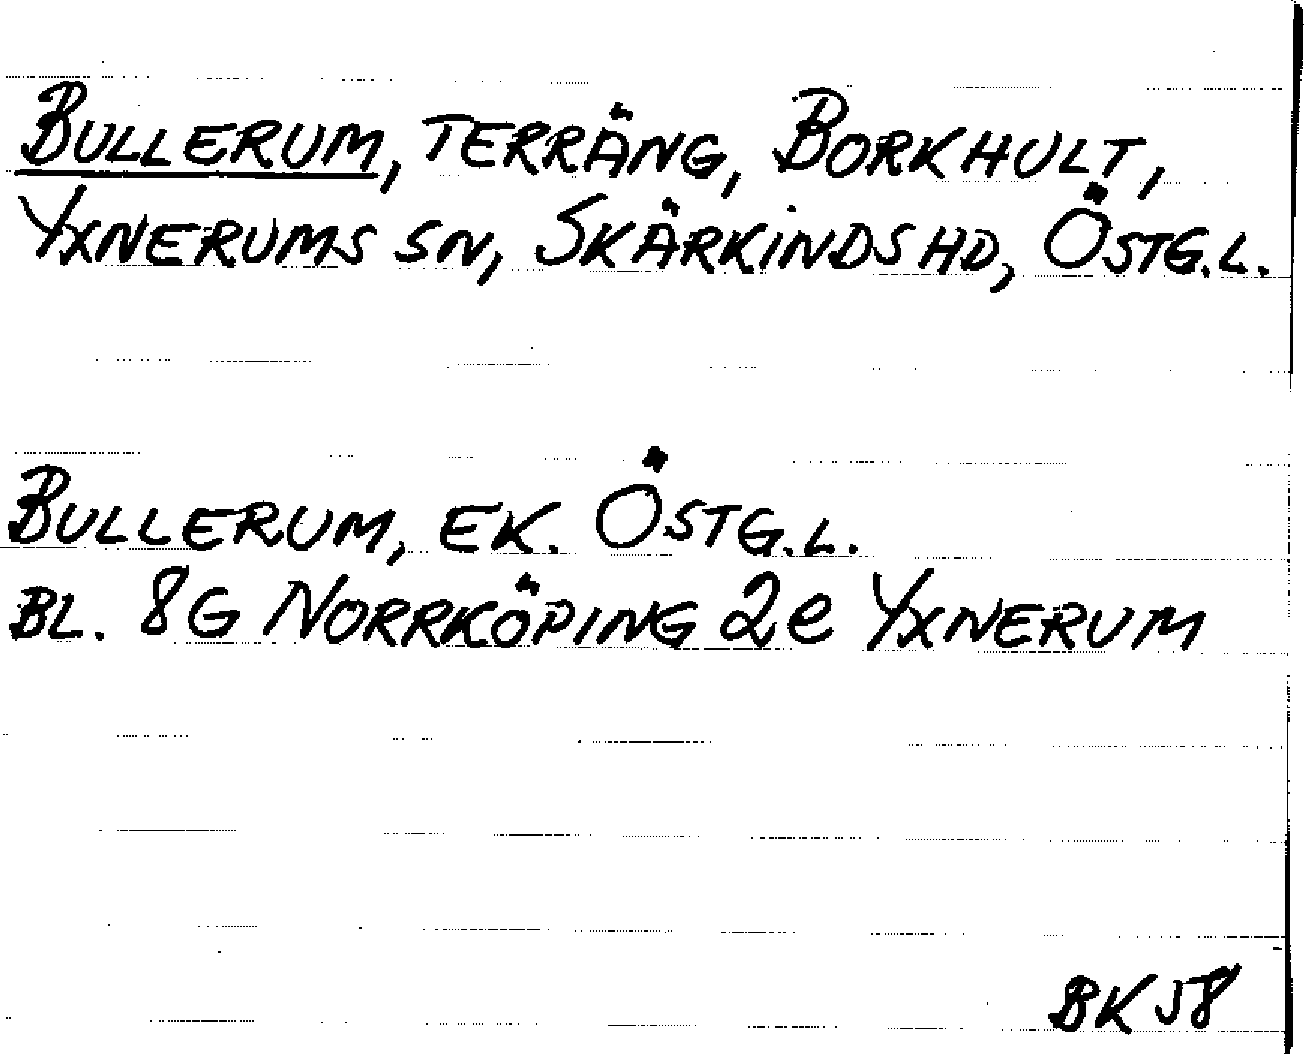 BULLERUM, TERRÄNG, BORKHULT,
YXNERUMS SN, SKÄRKINDS HD, ÖSTG.L.
BULLERUM, EK. ÖSTG.L.
BL. 8G NORRKÖPING 2e YXNERUM
BK 58